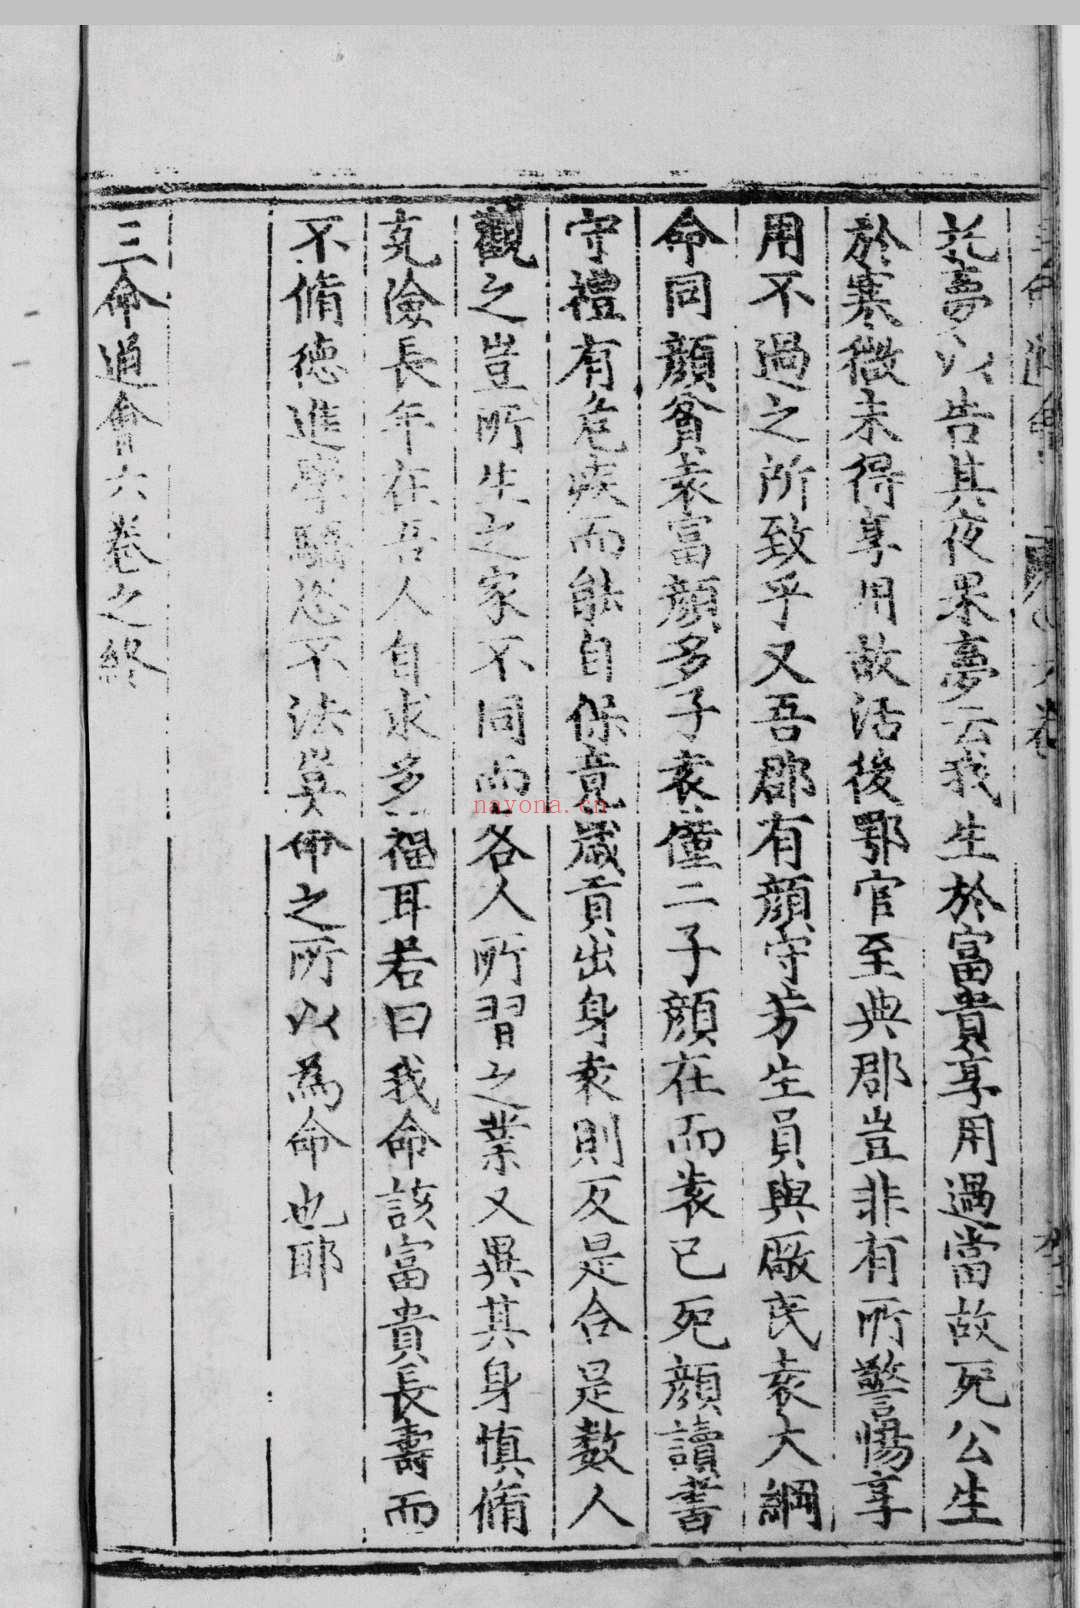 托夢以告其夜果夢云我生於富貴享用過當故死公生
於寒微未得享用故活後鄂官至典郡豈非有所警惕享
用不過之所致乎又吾郡有顏守芳生員與廠民袁大綱
命同顏貧袁富顏多子袁僅二子顏在而袁已死顏讀書
守禮有危疾而能自保竟歲貢出身袁則反是合是數人
觀之豈所生之家不同而各人所習之業又異其身慎脩
克儉長年在吾人自求多福耳若曰我命該富貴長壽而
不脩德進學驕恣不法豈命之所以為命也耶
三命通會六卷之終
nayona.cn